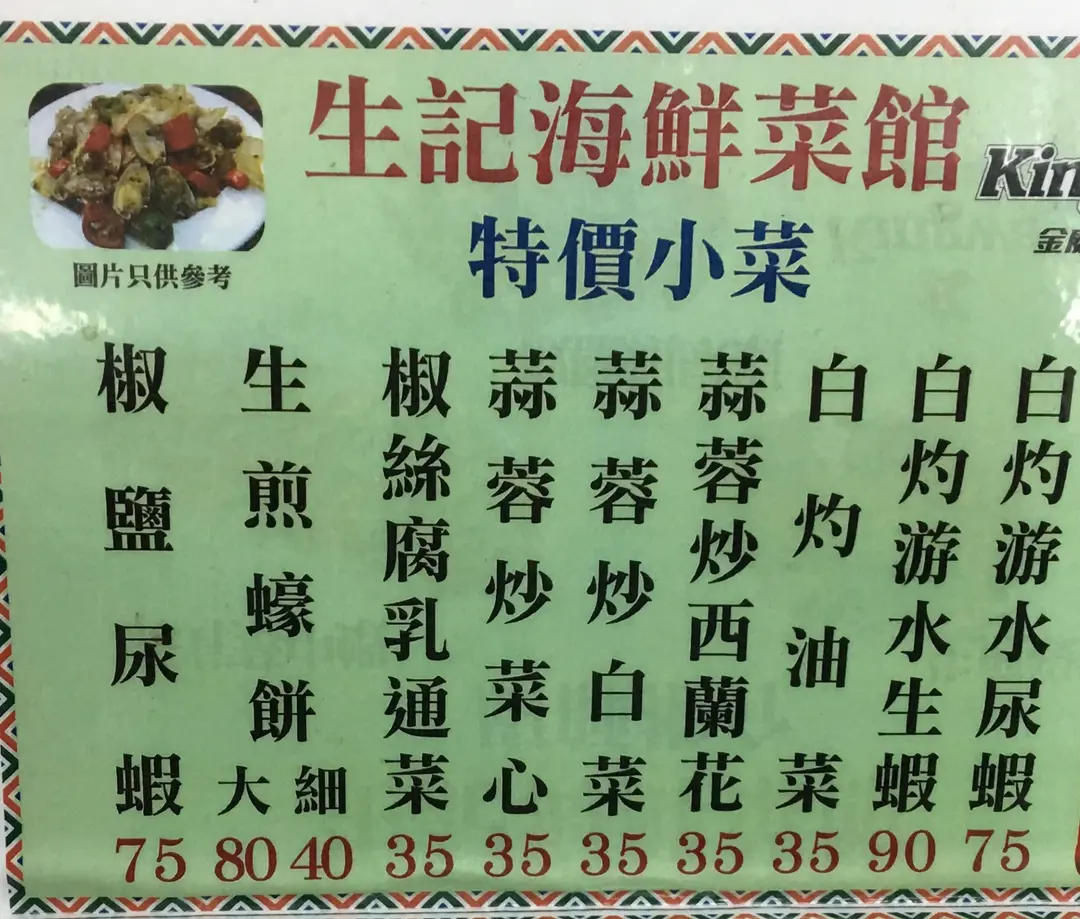 生記海鮮菜館
Kin
金威
特價小菜
圖片只供參考
白灼游水尿蝦 75
白灼游水生蝦 90
白灼油菜 35
蒜蓉炒西蘭花 35
蒜蓉炒白菜 35
蒜蓉炒菜心 35
椒絲腐乳通菜 35
生煎蠔餅 大 80 細 40
椒鹽尿蝦 75